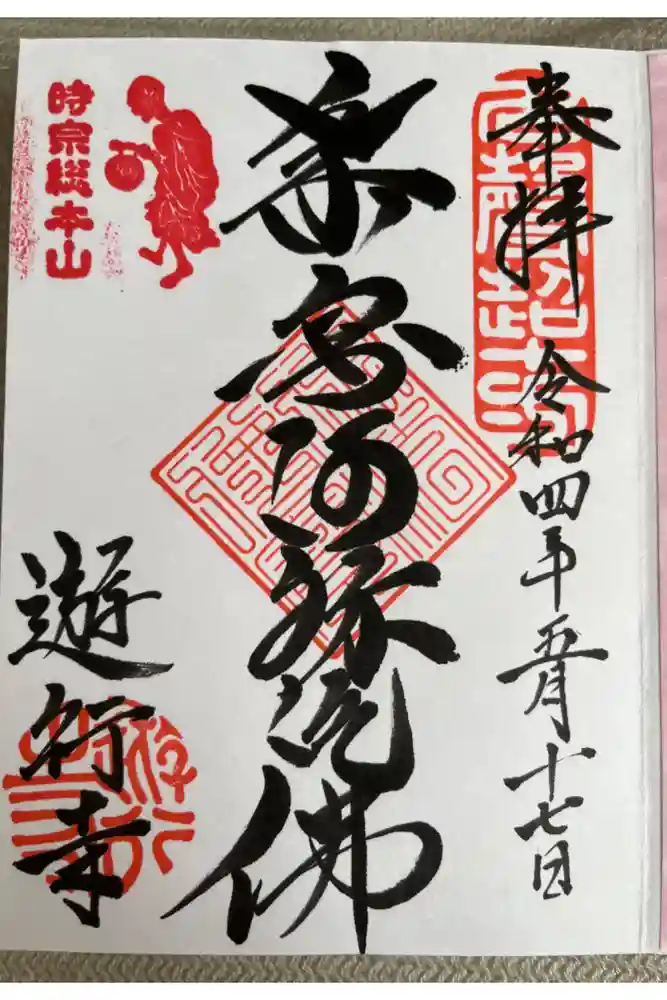 奉拝 令和四年五月十七日
南無阿弥陀佛
時宗総本山
遊行寺